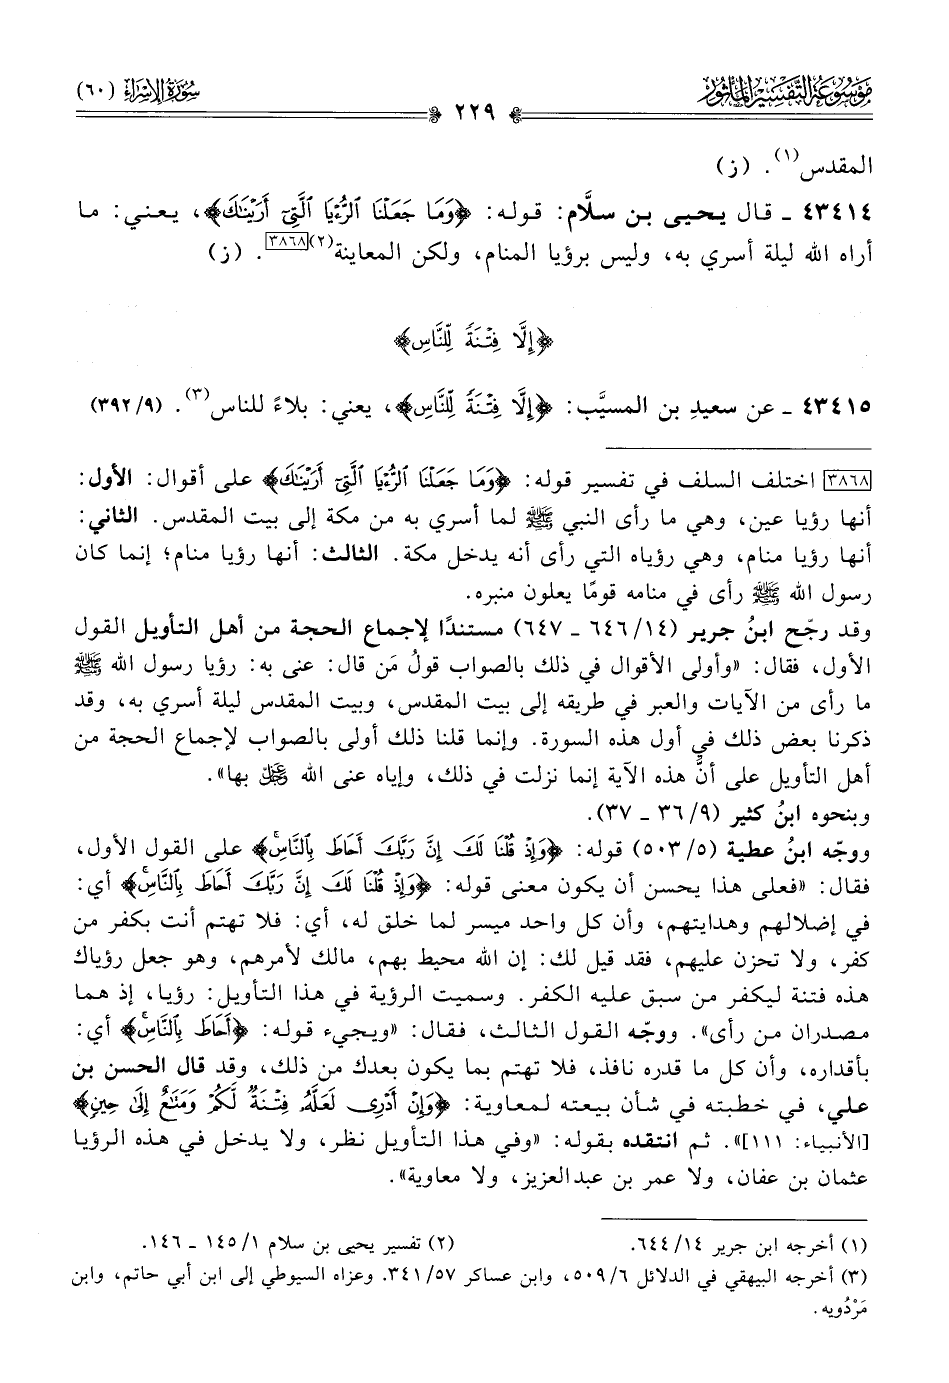 موسوعة التفسير المأثور
٢٢٩
سورة الإسراء (٦٠)
المقدس(١). (ز)
٤٣٤١٤ ـ قال يحيى بن سلَّام: قوله: ﴿وَمَا جَعَلْنَا الرُّءْيَا الَّتِي أَرَيْنَاكَ﴾، يعني: ما
أراه الله ليلة أسري به، وليس برؤيا المنام، ولكن المعاينة(٢)[٣٨٦٨]. (ز)
﴿إِلَّا فِتْنَةً لِلنَّاسِ﴾
٤٣٤١٥ ـ عن سعيدِ بن المسيَّب: ﴿إِلَّا فِتْنَةً لِلنَّاسِ﴾، يعني: بلاءً للناس(٣). (٣٩٢/٩)
[٣٨٦٨] اختلف السلف في تفسير قوله: ﴿وَمَا جَعَلْنَا الرُّءْيَا الَّتِي أَرَيْنَاكَ﴾ على أقوال: الأول:
أنها رؤيا عين، وهي ما رأى النبي ﷺ لما أسري به من مكة إلى بيت المقدس. الثاني:
أنها رؤيا منام، وهي رؤياه التي رأى أنه يدخل مكة. الثالث: أنها رؤيا منام؛ إنما كان
رسول الله ﷺ رأى في منامه قومًا يعلون منبره.
وقد رجّح ابنُ جرير (٦٤٦/١٤ ـ ٦٤٧) مستندًا لإجماع الحجة من أهل التأويل القول
الأول، فقال: «وأولى الأقوال في ذلك بالصواب قولُ مَن قال: عنى به: رؤيا رسول الله ﷺ
ما رأى من الآيات والعبر في طريقه إلى بيت المقدس، وبيت المقدس ليلة أسري به، وقد
ذكرنا بعض ذلك في أول هذه السورة. وإنما قلنا ذلك أولى بالصواب لإجماع الحجة من
أهل التأويل على أنَّ هذه الآية إنما نزلت في ذلك، وإياه عنى الله ﷿ بها».
وبنحوه ابنُ كثير (٣٦/٩ ـ ٣٧).
ووجّه ابنُ عطية (٥٠٣/٥) قوله: ﴿وَإِذْ قُلْنَا لَكَ إِنَّ رَبَّكَ أَحَاطَ بِالنَّاسِ﴾ على القول الأول،
فقال: «فعلى هذا يحسن أن يكون معنى قوله: ﴿وَإِذْ قُلْنَا لَكَ إِنَّ رَبَّكَ أَحَاطَ بِالنَّاسِ﴾ أي:
في إضلالهم وهدايتهم، وأن كل واحد ميسر لما خلق له، أي: فلا تهتم أنت بكفر من
كفر، ولا تحزن عليهم، فقد قيل لك: إن الله محيط بهم، مالك لأمرهم، وهو جعل رؤياك
هذه فتنة ليكفر من سبق عليه الكفر. وسميت الرؤية في هذا التأويل: رؤيا، إذ هما
مصدران من رأى». ووجّه القول الثالث، فقال: «ويجيء قوله: ﴿أَحَاطَ بِالنَّاسِ﴾ أي:
بأقداره، وأن كل ما قدره نافذ، فلا تهتم بما يكون بعدك من ذلك، وقد قال الحسن بن
علي، في خطبته في شأن بيعته لمعاوية: ﴿وَإِنْ أَدْرِي لَعَلَّهُ فِتْنَةٌ لَكُمْ وَمَتَاعٌ إِلَى حِينٍ﴾
[الأنبياء: ١١١]». ثم انتقده بقوله: «وفي هذا التأويل نظر، ولا يدخل في هذه الرؤيا
عثمان بن عفان، ولا عمر بن عبدالعزيز، ولا معاوية».
(١) أخرجه ابن جرير ١٤/ ٦٤٤.
(٢) تفسير يحيى بن سلام ١/ ١٤٥ ـ ١٤٦.
(٣) أخرجه البيهقي في الدلائل ٥٠٩/٦، وابن عساكر ٣٤١/٥٧. وعزاه السيوطي إلى ابن أبي حاتم، وابن
مَرْدُويه.